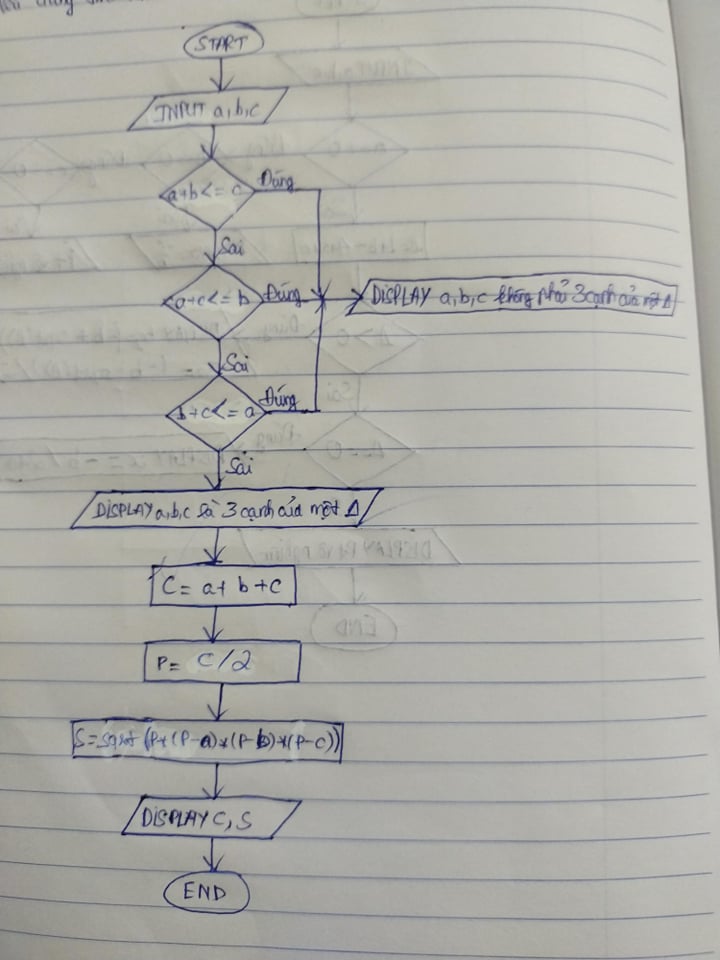 START
INPUT a,b,c
a+b<=c Đúng
Sai
a+c<=b Đúng DISPLAY a,b,c không phải 3 cạnh của một Δ
Sai
b+c<=a Đúng
Sai
DISPLAY a,b,c là 3 cạnh của một Δ
C= a+b+c
P= C/2
S=sqrt(P*(P-a)*(P-b)*(P-c))
DISPLAY C, S
END